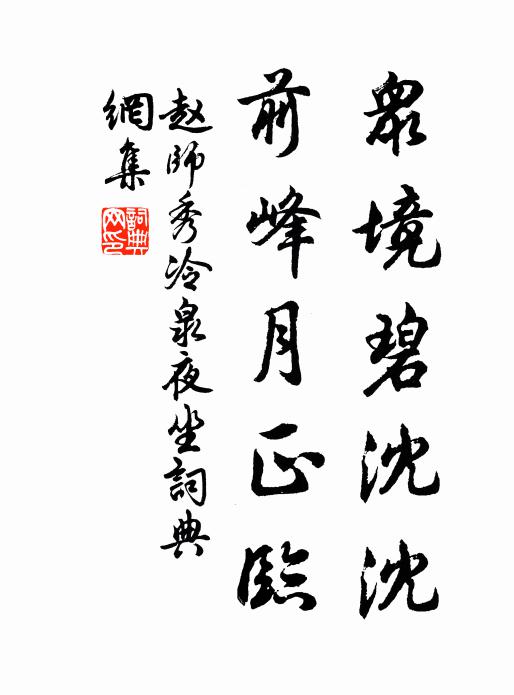 眾境碧沈沈
前峰月正臨
赵師秀冷泉夜坐詞典
網集
詞典网印